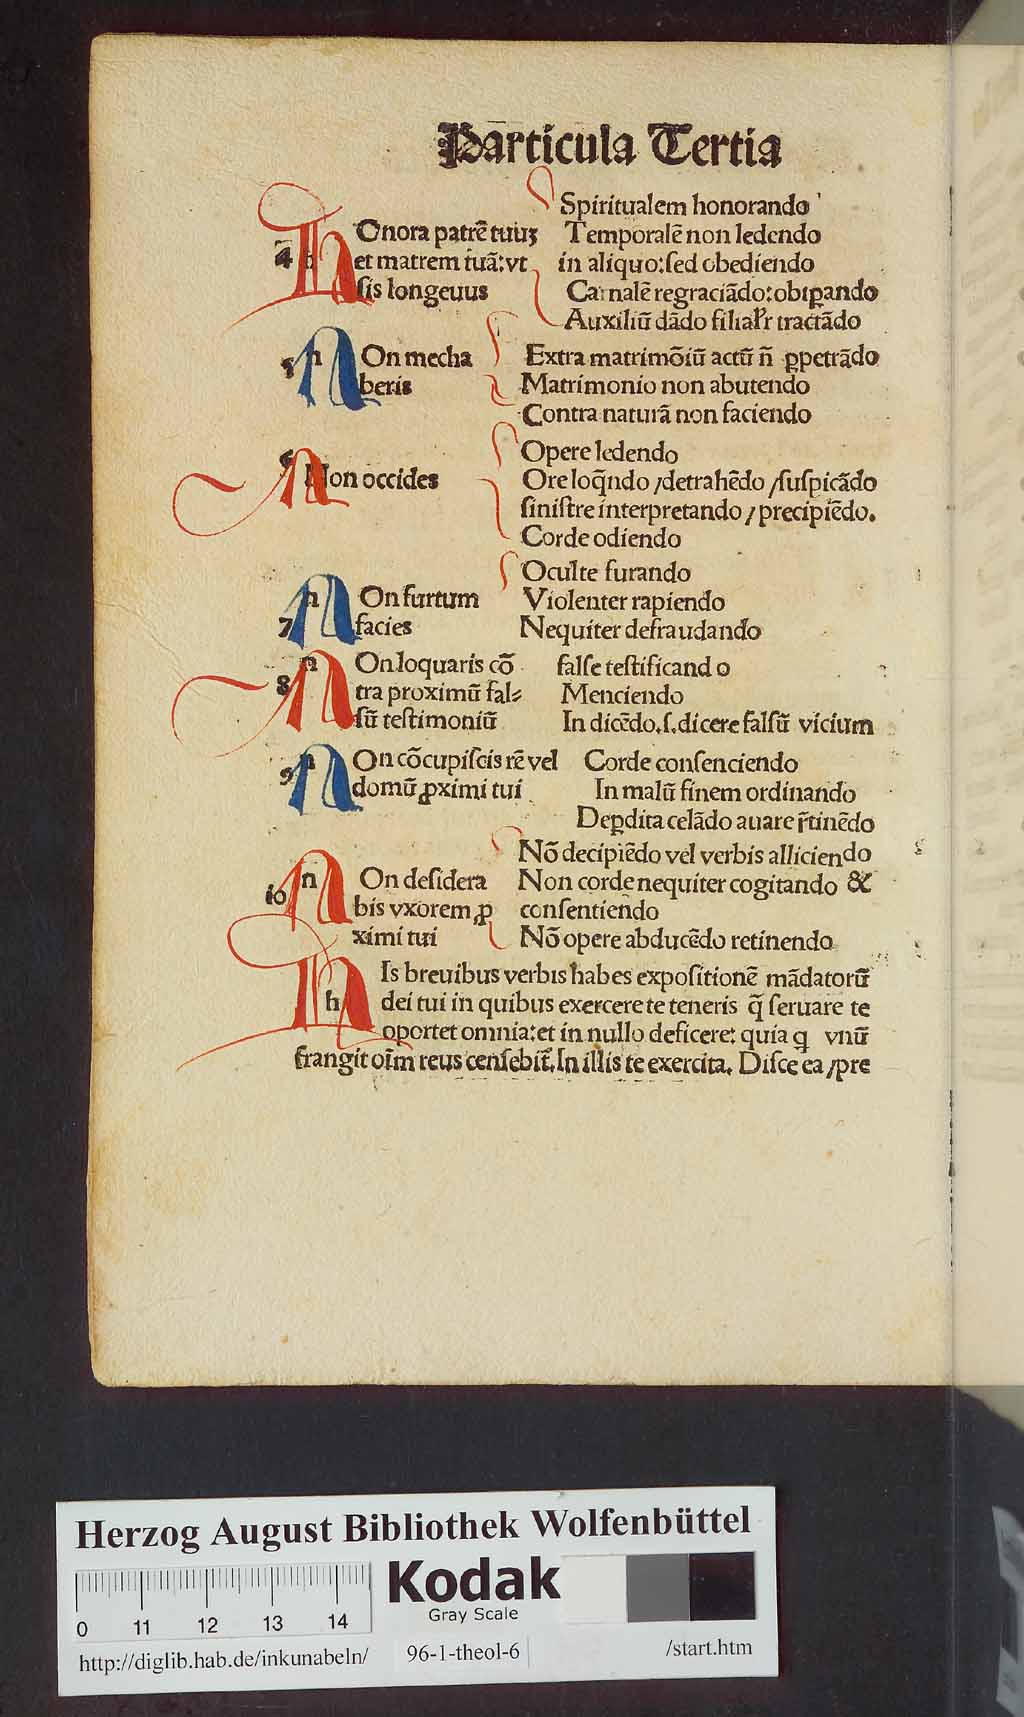 Particula Tertia
Spiritualem honorando
4 h Onora patrē tuuꝫ Temporalē non ledendo
et matrem tuā: vt in aliquo: sed obediendo
sis longeuus Carnalē regraciādo: obtꝑando
Auxiliū dādo filial'r tractādo
5 n On mecha Extra matrimōiū actū n̄ ꝑpetrādo
beris Matrimonio non abutendo
Contra naturā non faciendo
Opere ledendo
6 Non occides Ore loq̄ndo /detrahēdo /suspicādo
sinistre interpretando / precipiēdo.
Corde odiendo
Oculte furando
n On furtum Violenter rapiendo
7 facies Nequiter defraudando
n On loquaris cō false testificand o
8 tra proximū fal⸗ Menciendo
sū testimoniū In dicēdo.s. dicere falsū vicium
n On cōcupiscis rē vel Corde consenciendo
9 domū ꝓximi tui In malū finem ordinando
Deꝑdita celādo auare r̄tinēdo
Nō decipiēdo vel verbis alliciendo
10 n On desidera Non corde nequiter cogitando &
bis vxorem ꝓ consentiendo
ximi tui Nō opere abducēdo retinendo
h Is breuibus verbis habes expositionē mādatorū
dei tui in quibus exercere te teneris q̄ seruare te
oportet omnia: et in nullo deficere: quia q vnū
frangit oīm reus censebit̄. In illis te exercita. Disce ea /pre
Herzog August Bibliothek Wolfenbüttel
0 11 12 13 14
Kodak
Gray Scale
http://diglib.hab.de/inkunabeln/ 96-1-theol-6 /start.htm